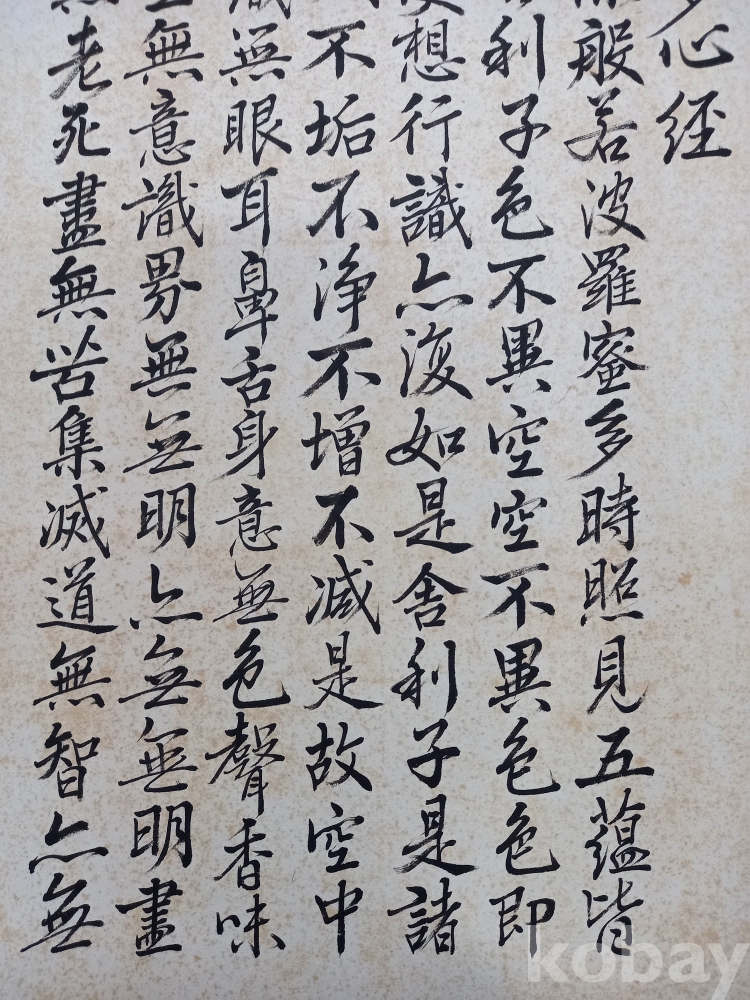 多心經
般若波羅蜜多時照見五蘊皆
利子色不異空空不異色色即
受想行識亦復如是舍利子是諸
不垢不淨不增不減是故空中
識無眼耳鼻舌身意無色聲香味
無意識界無無明亦無無明盡
無老死盡無苦集滅道無智亦無
kobay